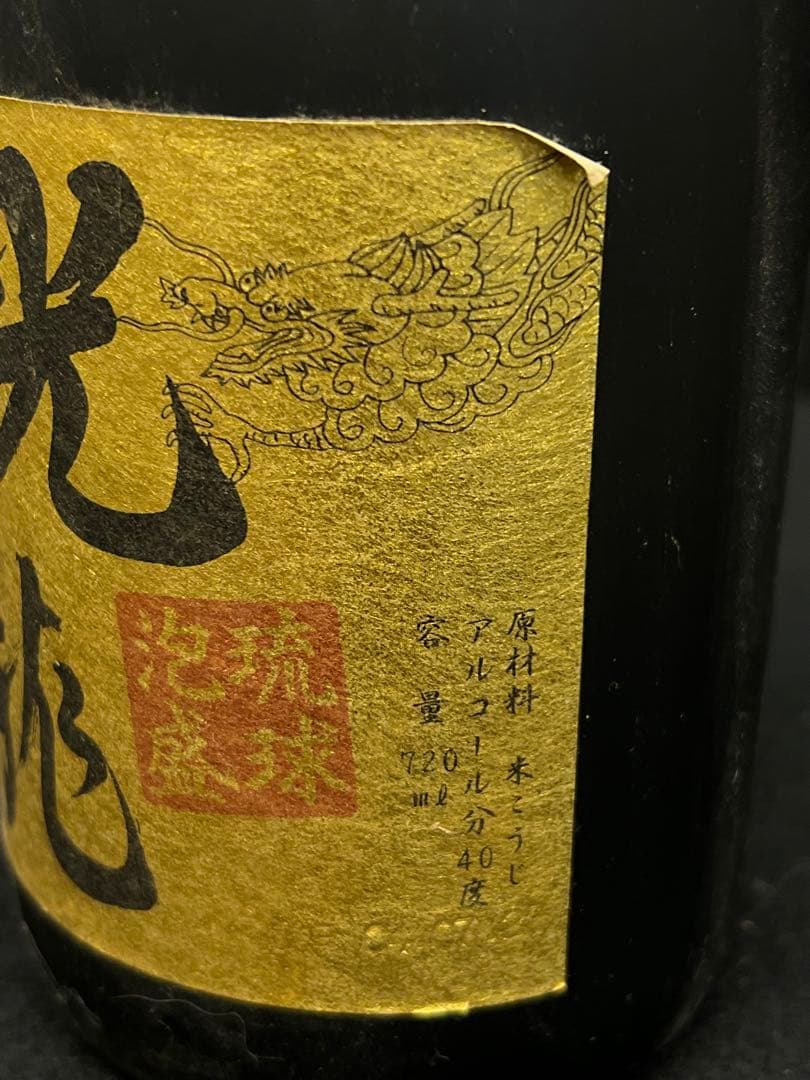 光龍
琉球
泡盛
原材料 米こうじ
アルコール分40度
容量720ml